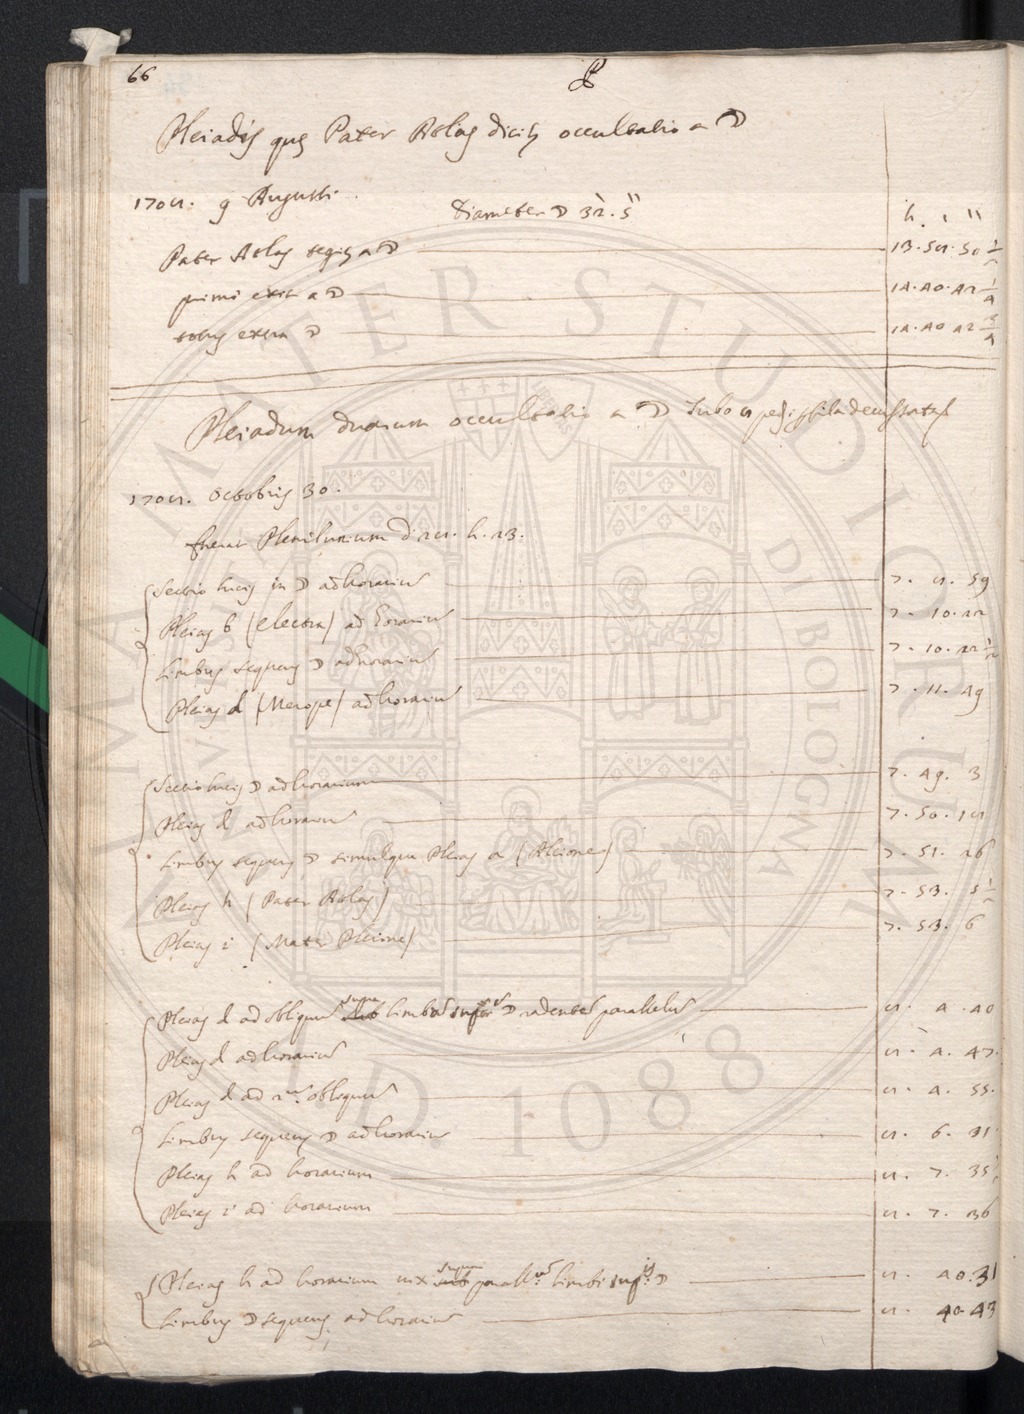 66
Pleiadis quæ Pater Atlas dicitur occultatio a ☽
1708. 9 Augusti.
Diameter ☽ 32'. 5"
h. ' "
Pater Atlas tegitur a ☽ 13. 58. 50 1/2
primò exit a ☽ 14. 40. 42 1/4
totus extra ☽ 14. 40 42 3/4
Pleiadum duarum occultatio a ☽ Tubo 8 ped.
1708. Octobris 30.
fuerat Plenilunium d. 28. h. 23.
Sectio lucis in ☽ ad horarium 7. 8. 59
Pleias b (Electra) ad horarium 7. 10. 22
Limbus sequens ☽ ad horarium 7. 10. 22 1/2
Pleias d (Merope) ad horarium 7. 11. 49
Sectio lucis ☽ ad horarium 7. 49. 3
Pleias d ad horarium 7. 50. 18
Limbus sequens ☽ simulque Pleias a (Alcione) 7. 51. 26
Pleias h (Pater Atlas) 7. 53. 5 1/2
Pleias i (Mater Pleione) 7. 53. 6
Pleias d ad obliquum supra limbum super ☽ radentem parallelum 8. 4. 40
Pleias d ad horarium 8. 4. 47.
Pleias d ad 2um obliquum 8. 4. 55.
Limbus sequens ☽ ad horarium 8. 6. 31
Pleias h ad horarium 8. 7. 35
Pleias i ad horarium 8. 7. 36
Pleias h ad horarium vix supra parall. limbi sup. ☽ 8. 40. 31
Limbus ☽ sequens ad horarium 8. 40. 43